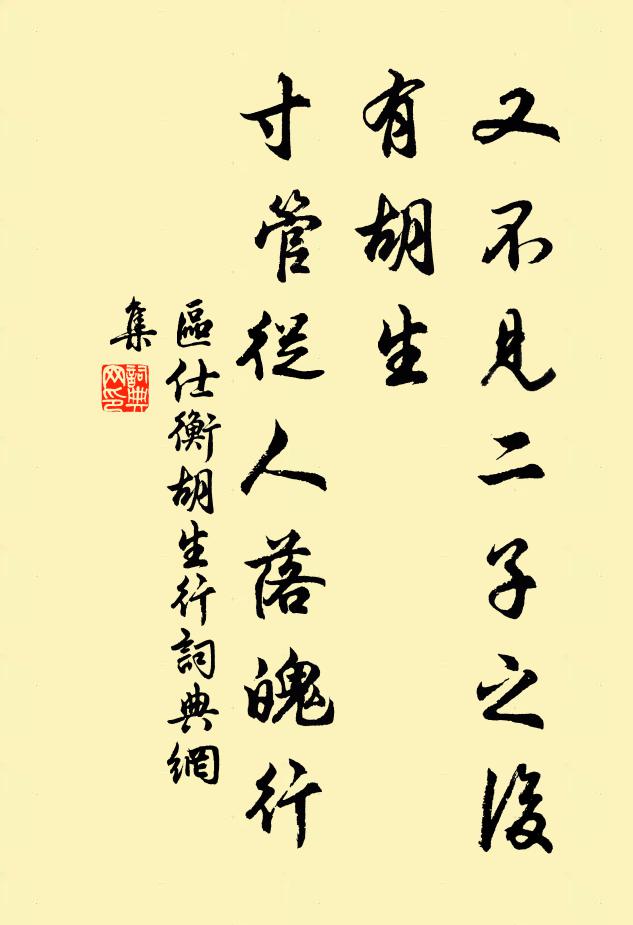 又不見二子之後
有胡生
寸管從人落魄行
區仕衡胡生行詞典網
集
詞典
网印